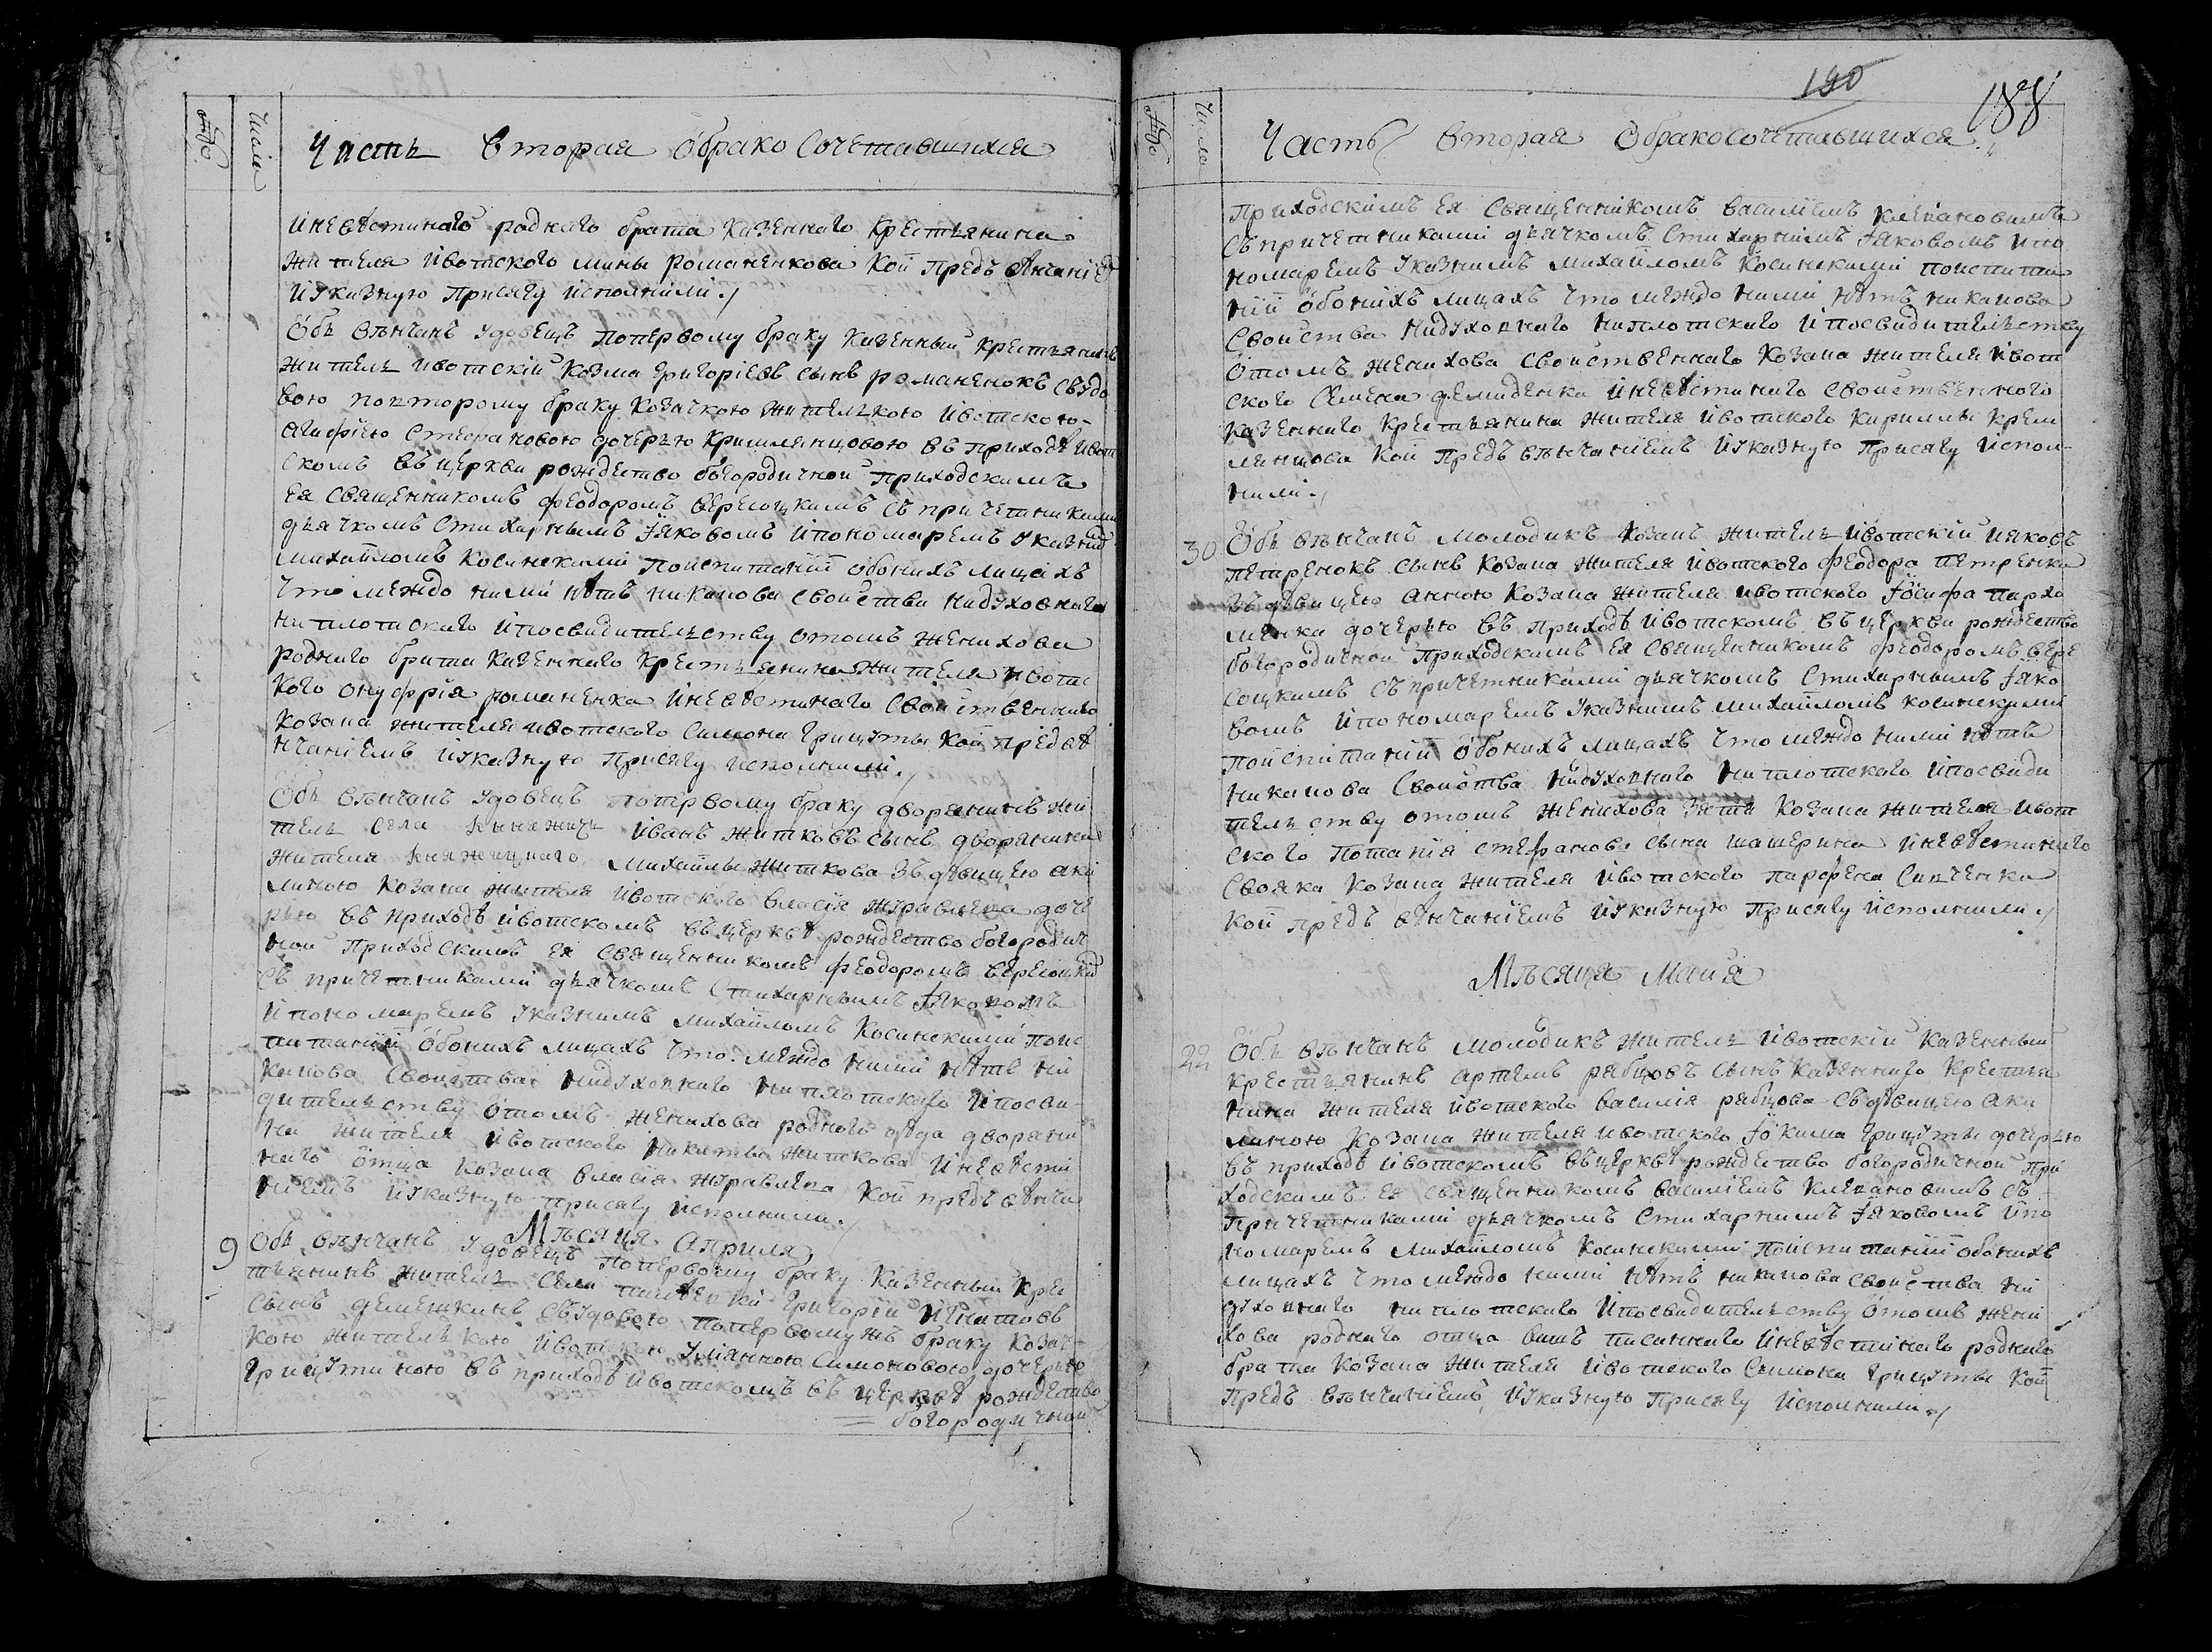 Числа
Часть вторая обракосочетавшихся
иневѣстинаго роднаго брата казенного крестьянина
жителя ивотского мины романенкова кои предъ
иуказную присягу исполнили
Объ вѣнчанъ удовецъ поперъвому браку казенный крестьянинъ
житель ивотскій козма григоріевъ сынъ романенокъ съудо
вою повторому браку козачкою жителькою ивотскою
агафіею стефановою дочерью кримлянцовою въ приходѣ ивот
скомъ въ церкви рождество богородичной приходскимъ
ея священникомъ феодоромъ вересоцкимъ съ причетниками
дьячкомъ стихарнымъ іяковомъ ипономаремъ указним
михайломъ косинскими поиспитаніи обоихъ лицахъ
что между ними нѣтъ никакова свойства нидуховнаго
ниплотского ипосвидителству отомъ женихова
роднаго брата казенного крестьянина жителя ивотс
кого онуфрія романенка иневѣстинаго свойственного
козака жителя ивотского симона грицуты кои предъвѣ
нчаніемъ иуказную присягу исполнили
Объ вѣнчанъ удовецъ поперъвому браку дворянинъ жи
тель села княжичъ иванъ житковъ сынъ дворянина
жителя княжицкаго михайлы житкова зъдѣвицею аки
линою козака жителя ивотского власія журавлева доче
рью въ приходѣ ивотскомъ въ церквѣ рождество богородич
ной приходскимъ ея священникомъ феодоромъ вересоцким
съ причетниками дьячкомъ стихарнымъ іяковомъ
ипономаремъ указнимъ михайломъ косинскими поис
питаніи обоихъ лицахъ что между ними нѣтъ ни
какова свойства нидуховнаго ниплотского ипосви
дителству отомъ женихова родного дѣда дворяни
на жителя ивотского никиты житкова иневѣсти
наго отца козака власія журавлева кои предъ вѣнча
ніемъ иуказную присягу исполнили
Мѣсяця Априля
9 Объ вѣнчанъ удовецъ поперъвому браку казенный крес
тьянинъ житель села григорій игнатовъ
сынъ демешкинъ съудовою поперъвомужъ браку козач
кою жителькою ивотскою уліянною симоновою дочерью
грицутиною въ приходѣ ивотскомъ въ церквѣ рождество
богородичной
190
188
Числа
Часть вторая обракосочетавшихся
приходскимъ ея священникомъ василіемъ клепановимъ
съпричетниками дьячкомъ стихарнимъ іяковомъ ипо
номаремъ указнимъ михайломъ косинскими поиспита
ніи обоихъ лицахъ что между ними нѣтъ никакова
свойства нидуховного ниплотского ипосвидителству
отомъ женихова свойственного козака жителя ивот
ского семена демиденка иневѣстинаго свойственного
казенного крестьянина жителя ивотского кирилла крем
лянцова кои предъ вѣнчаніемъ иуказную присягу испол
нили
30 Объ вѣнчанъ молодикъ козакъ житель ивотскій іяковъ
петренокъ сынъ козака жителя ивотского феодора петренка
зъ дѣвицею анною козака жителя ивотского іосифа пархо
менка дочерью въ приходѣ ивотскомъ въ церкви рождество
богородичной приходскимъ ея священникомъ феодоромъ вере
соцкимъ съ причетниками дьячкомъ стихарнымъ іяко
вомъ ипономаремъ указнимъ михайломъ косинскими
поиспитаніи обоихъ лицахъ что между ними нѣтъ
никакова свойства нидуховного ниплотского ипосвиди
телству отомъ женихова зятя козака жителя ивот
ского потапія стефанова сына шашерина иневѣстинаго
свояка козака жителя ивотского парфена савченка
кои предъ вѣнчаніемъ иуказную присягу исполнили
Мѣсяця Маия
22 Объ вѣнчанъ молодикъ житель ивотскій казенный
крестьянинъ артемъ рябцовъ сынъ казенного крестья
нина жителя ивотского василія рябцова съдѣвицею аки
линою козака жителя ивотского іокима грицуты дочерью
въ приходѣ ивотскомъ въцерквѣ рождество богородичной при
ходскимъ ея священникомъ василіемъ клепановимъ съ
причетниками дьячкомъ стихарнимъ іяковомъ ипо
номаремъ михайломъ косинскими поиспитаніи обоихъ
лицахъ что между ними нѣтъ никакова свойства ни
духовного ниплотского ипосвидителству отомъ жени
хова родного отца вишъ писанного иневѣстинаго родного
брата козака жителя ивотского симона грицуты кои
предъ вѣнчаніемъ иуказную присягу исполнили